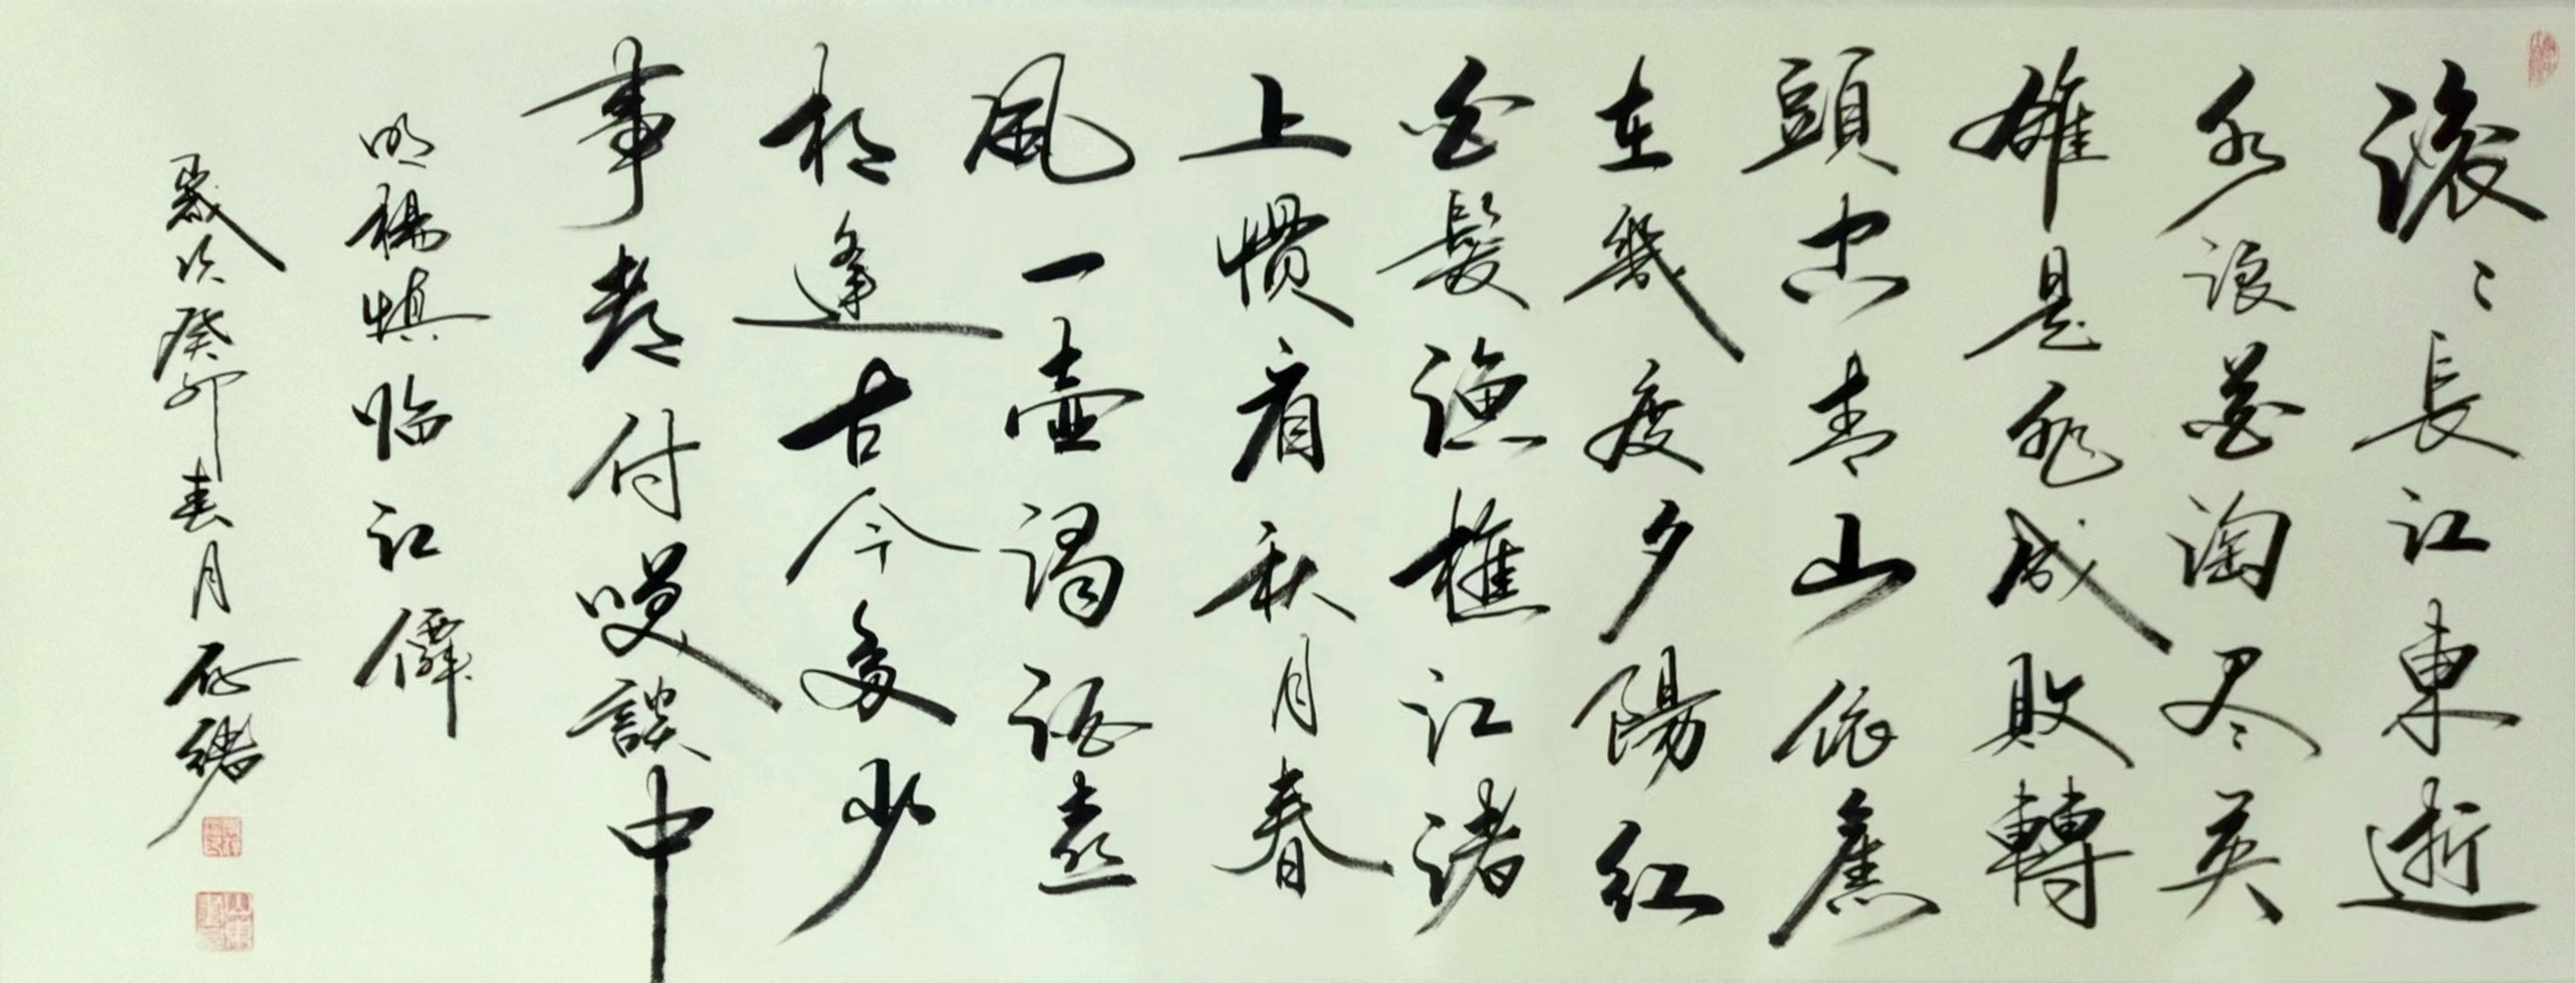 滚〻長江東逝
水浪花淘尽英
雄是非成敗轉
頭空青山依舊
在幾度夕陽红
白髮漁樵江渚
上惯看秋月春
風一壺濁酒喜
相逢古今多少
事都付咲談中
明楊慎临江僊
歲次癸卯春月